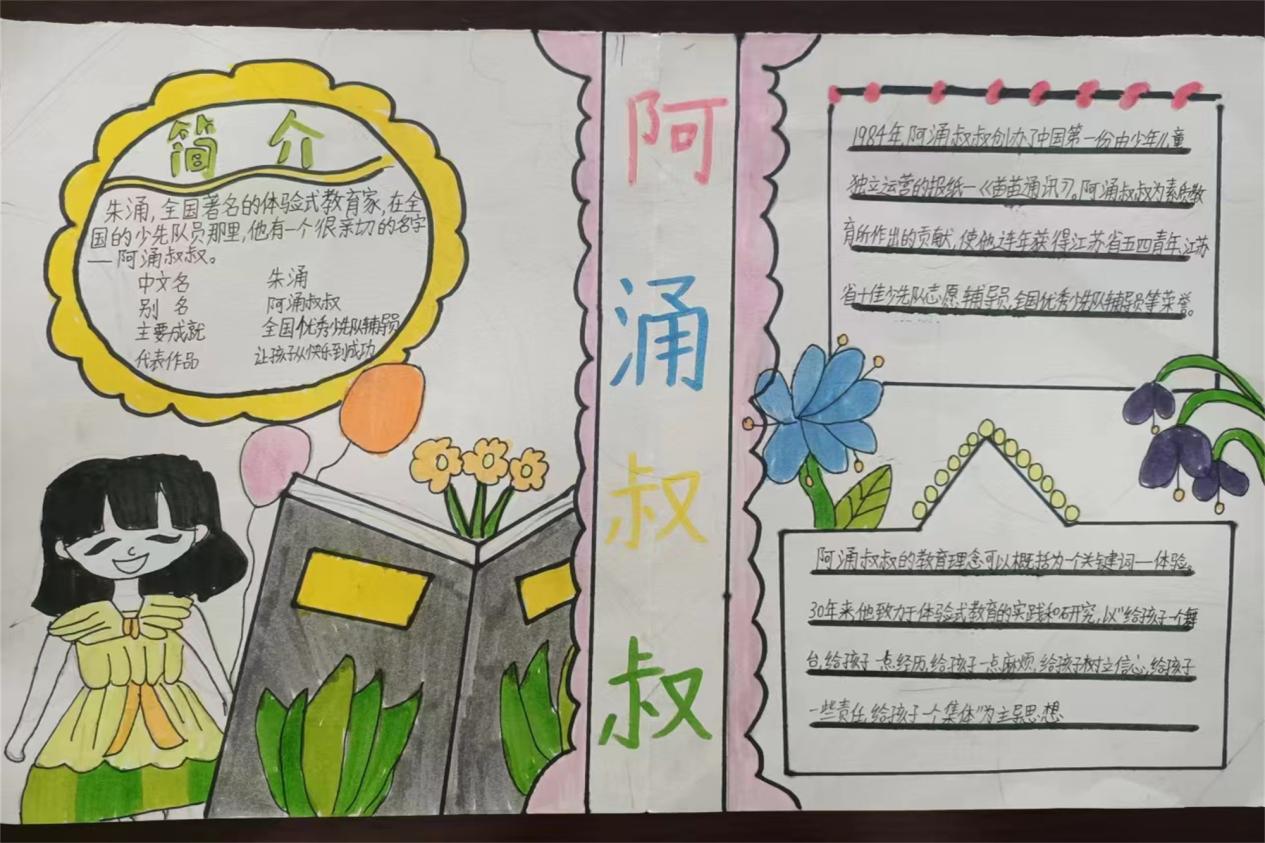 简 介
朱涌,全国著名的体验式教育家,在全
国的少先队员那里,他有一个很亲切的名字
——阿涌叔叔。
中文名 朱涌
别 名 阿涌叔叔
主要成就 全国优秀少先队辅导员
代表作品 让孩子从快乐到成功
阿
涌
叔
叔
1984年,阿涌叔叔创办了中国第一份由少年儿童
独立运营的报纸—《菁菁通讯》。阿涌叔叔为素质教
育所作出的贡献,使他连年获得江苏省五四青年,江苏
省十佳少先队志愿辅导员,全国优秀少先队辅导员等荣誉。
阿涌叔叔的教育理念可以概括为一个关键词——体验。
30年来他致力于体验式教育的实践和研究,以“给孩子一个舞
台,给孩子一点经历,给孩子一点麻烦,给孩子树立信心,给孩子
一些责任,给孩子一个集体”为主导思想